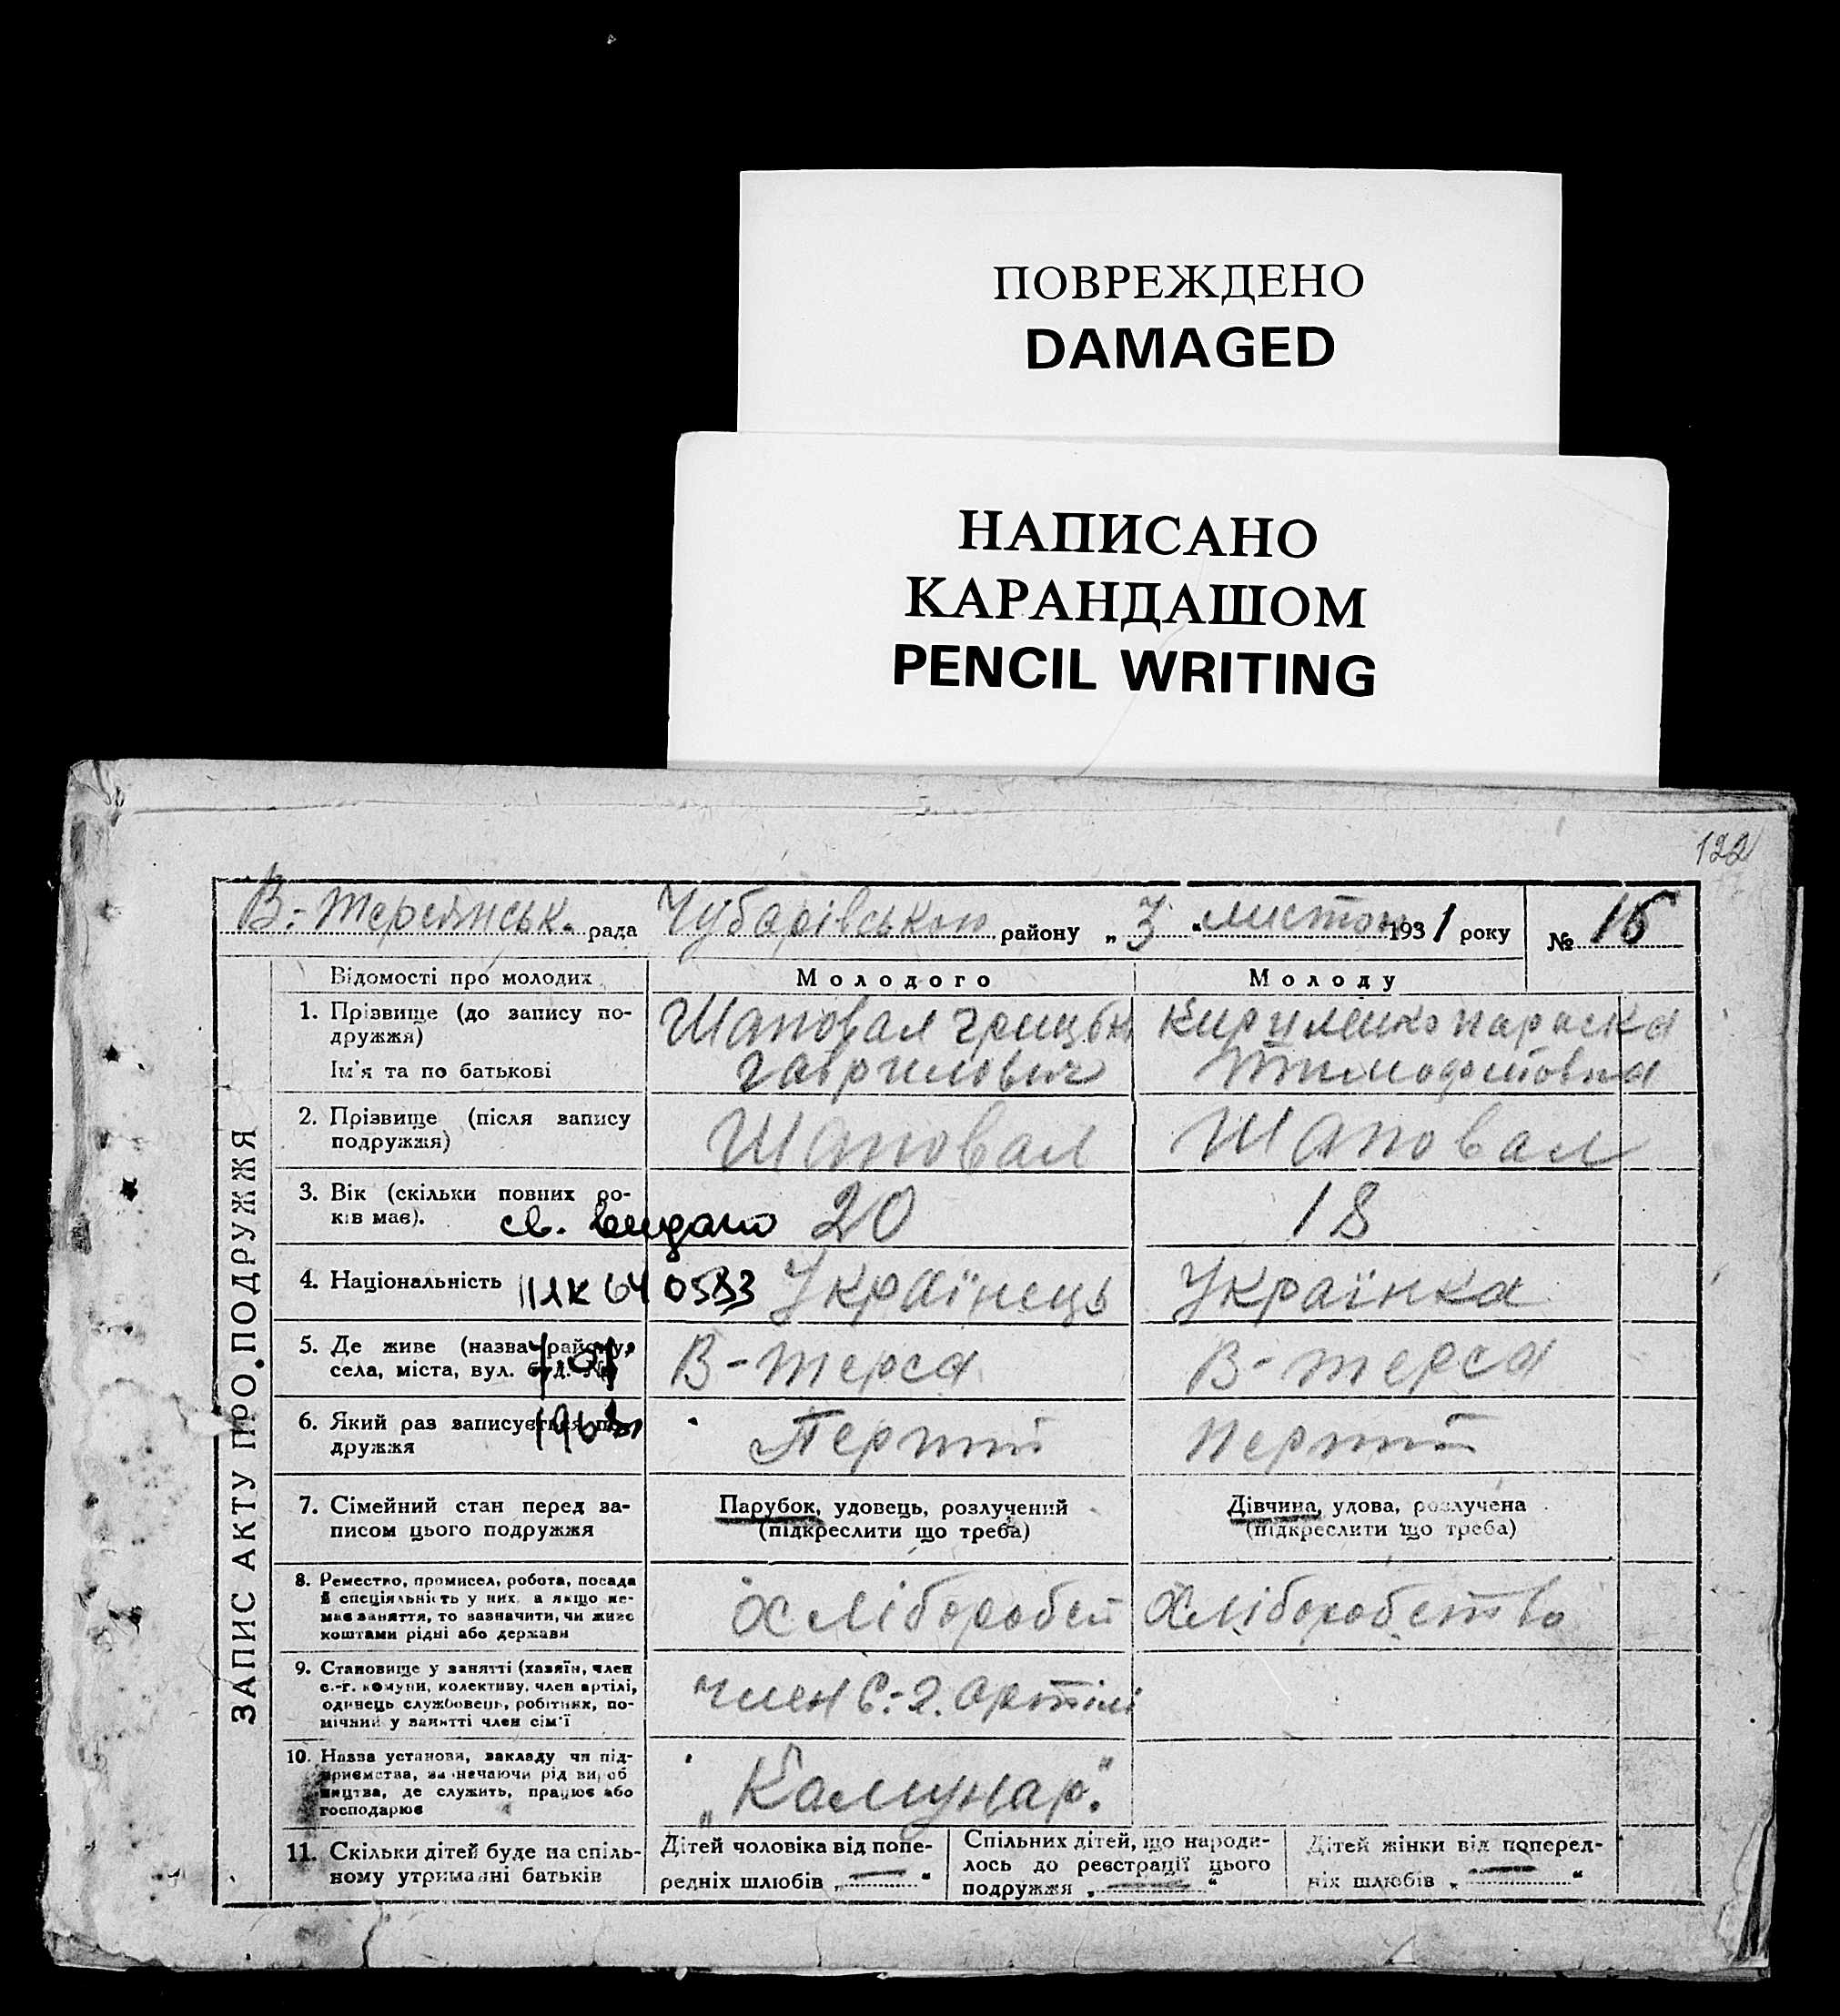 ПОВРЕЖДЕНО
DAMAGED
НАПИСАНО
КАРАНДАШОМ
PENCIL WRITING
122
ЗАПИС АКТУ ПРО ПОДРУЖЖЯ
В.-Терсянськ. рада Чубарівського району „3“ листоп 1931 року № 16
Відомості про молодих
Молодого
Молоду
1. Прізвище (до запису по-
дружжя)
Ім'я та по батькові
Шаповал Грицько
Гаврилович
Кириленко Параска
Тимофеївна
2. Прізвище (після запису
подружжя)
Шаповал
Шаповал
3. Вік (скільки повних ро-
ків має).
св. видано
20
18
4. Національність
ІІЯК 640583
Українець
Українка
5. Де живе (назва району,
села, міста, вул. буд. №)
В-Терса
В-Терса
6. Який раз записується по-
дружжя
Перший
Перший
7. Сімейний стан перед за-
писом цього подружжя
Парубок, удовець, розлучений
(підкреслити що треба)
Дівчина, удова, розлучена
(підкреслити що треба)
8. Ремество, промисел, робота, посада
й спеціяльність у них, а якщо не-
має заняття, то зазначити, чи живе
коштами рідні або держави
Хлібороб
Хліборобство
9. Становище у занятті (хазяїн, член
с.-г. комуни, колективу, член артілі,
одинець службовець, робітник, по-
мічний у занятті член сім'ї
член с.-г. артілі
10. Назва установи, закладу чи під-
приємства, зазначаючи рід вироб
ництва, де служить, працює або
господарює
„Комунар“.
11. Скільки дітей буде на спіль-
ному утриманні батьків
Дітей чоловіка від попе-
редніх шлюбів „—“
Спільних дітей, що народи-
лось до реєстрації цього
подружжя „—“
Дітей жінки від поперед-
ніх шлюбів „—“